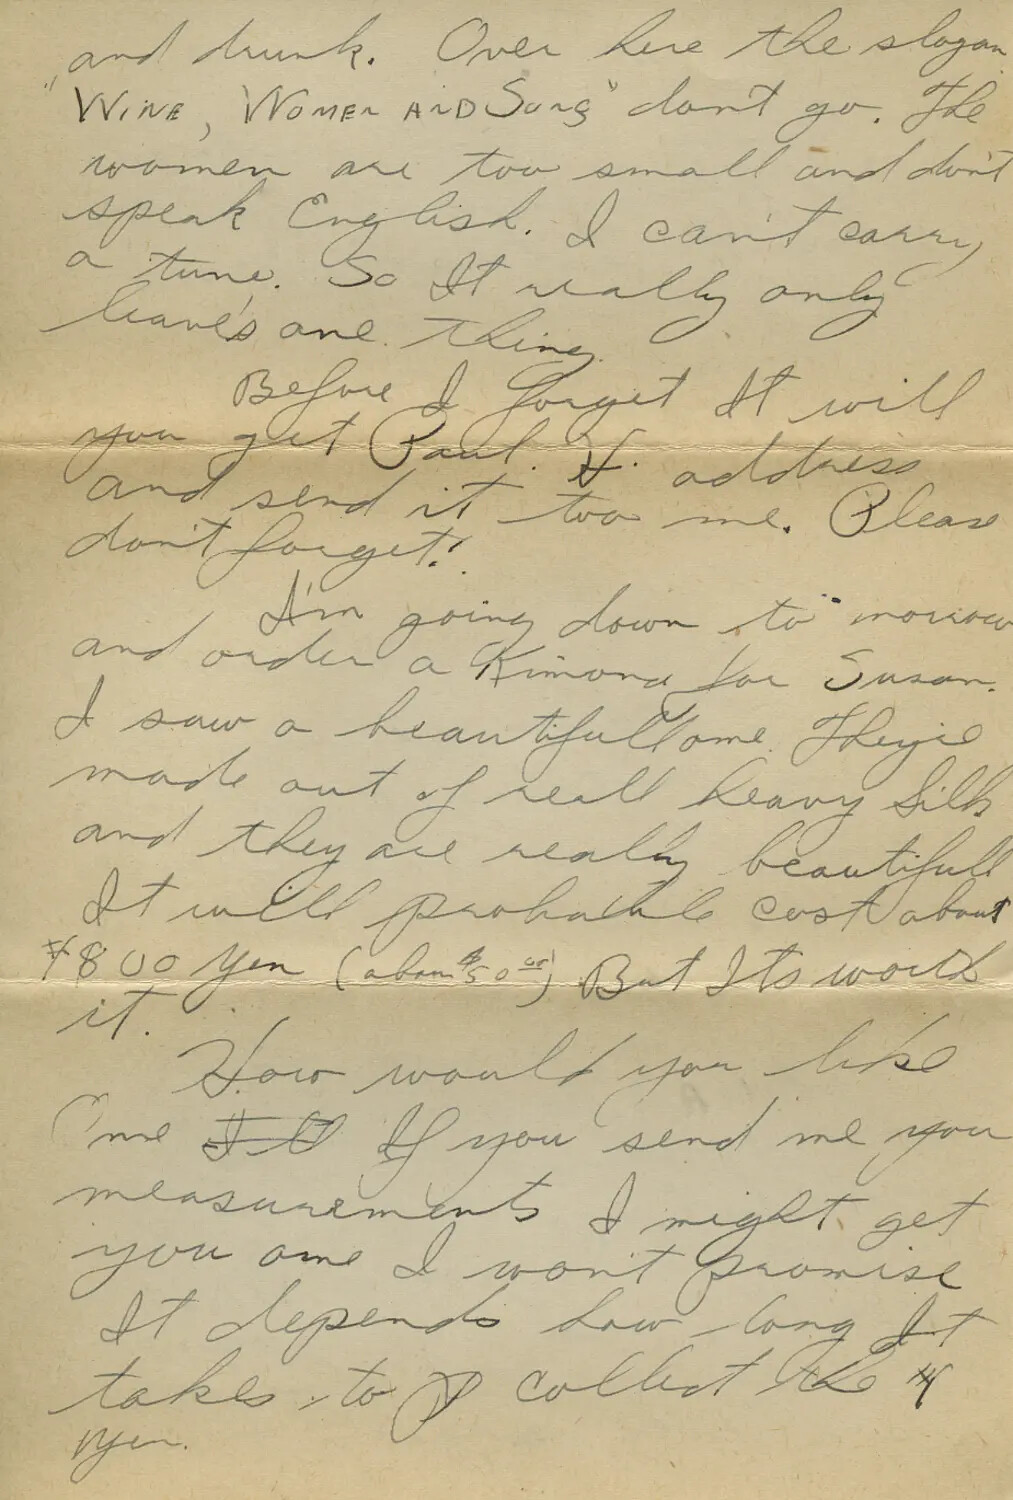 and drunk. Over here the slogan
"Wine, Women and Song" don't go. The
women are too small and don't
speak English. I can't carry
a tune. So It really only
leave's one thing.
Before I forget It will
you get Paul. H. address
and send it too me. Please
don't forget!
I'm going down to morrow
and order a Kimona for Susan.
I saw a beautifull one. They're
made out of reall heavy Silk
and they are really beautifull
It will probable cost about
¥800 yen (about $50.00) But Its worth
it.
How would you like
One If you send me you
measurements I might get
you one I won't promise
It depends how long It
takes to collect the ¥
yen.